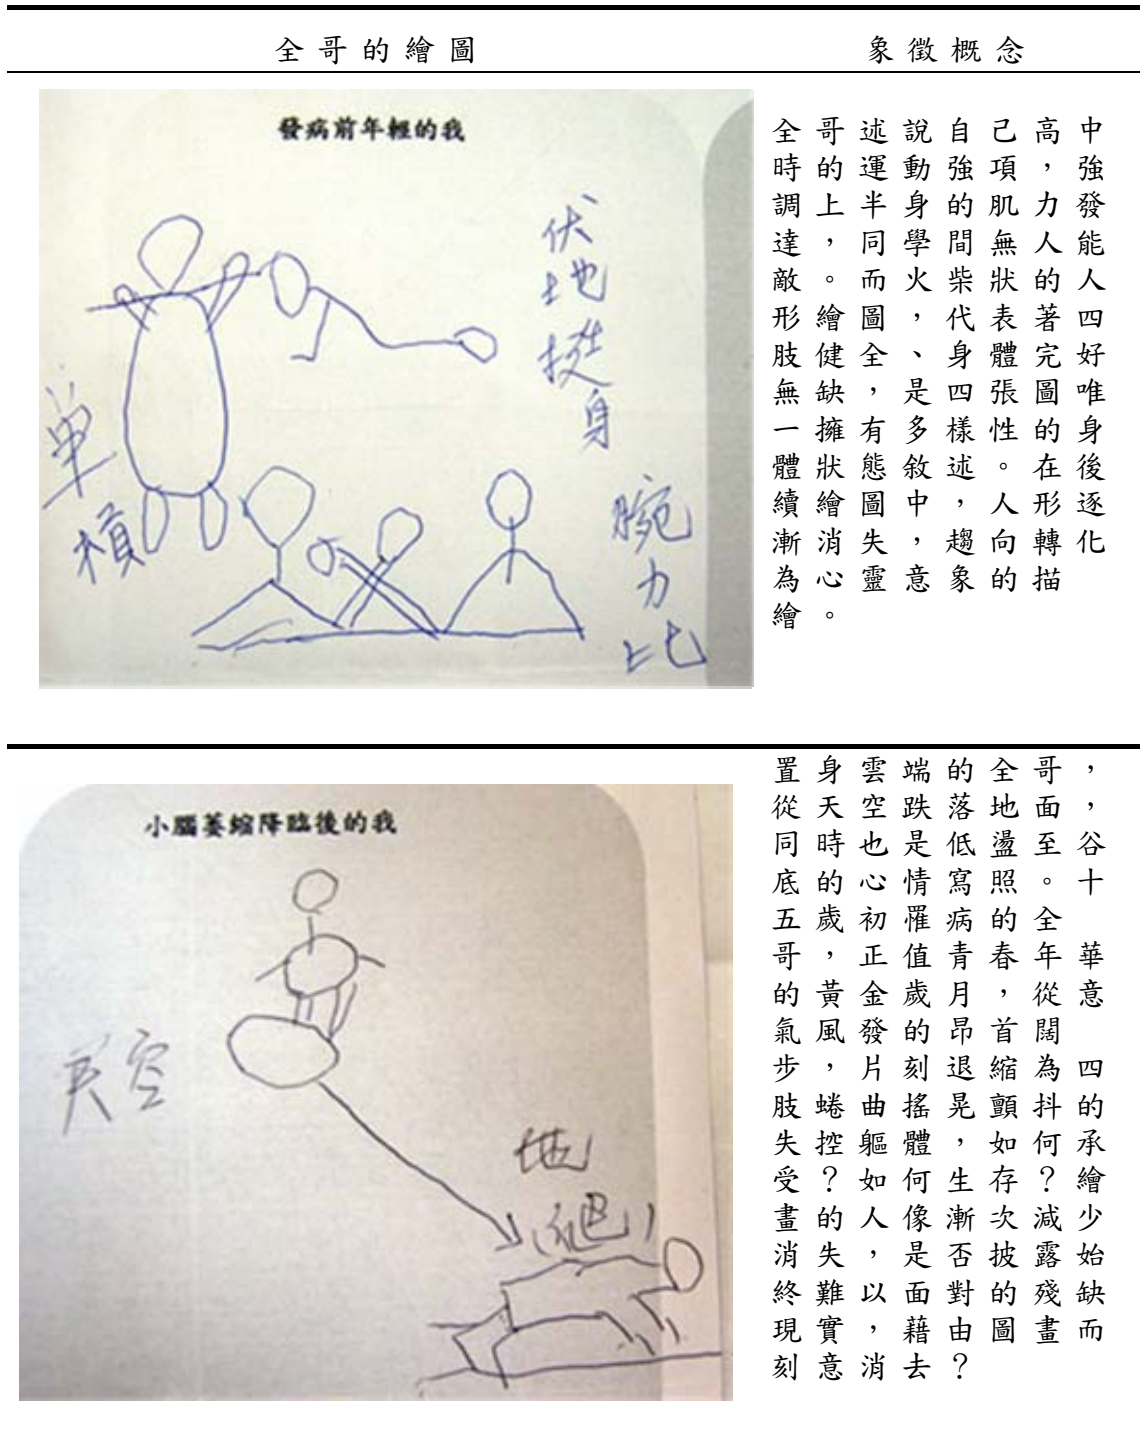 全哥的繪圖
象徵概念
發病前年輕的我
伏地挺身
单槓
腕力比
全哥述說自己高中
時的運動強項，強
調上半身的肌力發
達，同學間無人能
敵。而火柴狀的人
形繪圖，代表著四
肢健全、身體完好
無缺，是四張圖唯
一擁有多樣性的身
體狀態敘述。在後
續繪圖中，人形逐
漸消失，趨向轉化
為心靈意象的描
繪。
小腦萎縮降臨後的我
天空
地
(爬)
置身雲端的全哥，
從天空跌落地面，
同時也是低盪至谷
底的心情寫照。十
五歲初罹病的全
哥，正值青春年華
的黃金歲月，從意
氣風發的昂首闊
步，片刻退縮為四
肢蜷曲搖晃顫抖的
失控軀體，如何承
受？如何生存？繪
畫的人像漸次減少
消失，是否披露始
終難以面對的殘缺
現實，藉由圖畫而
刻意消去？